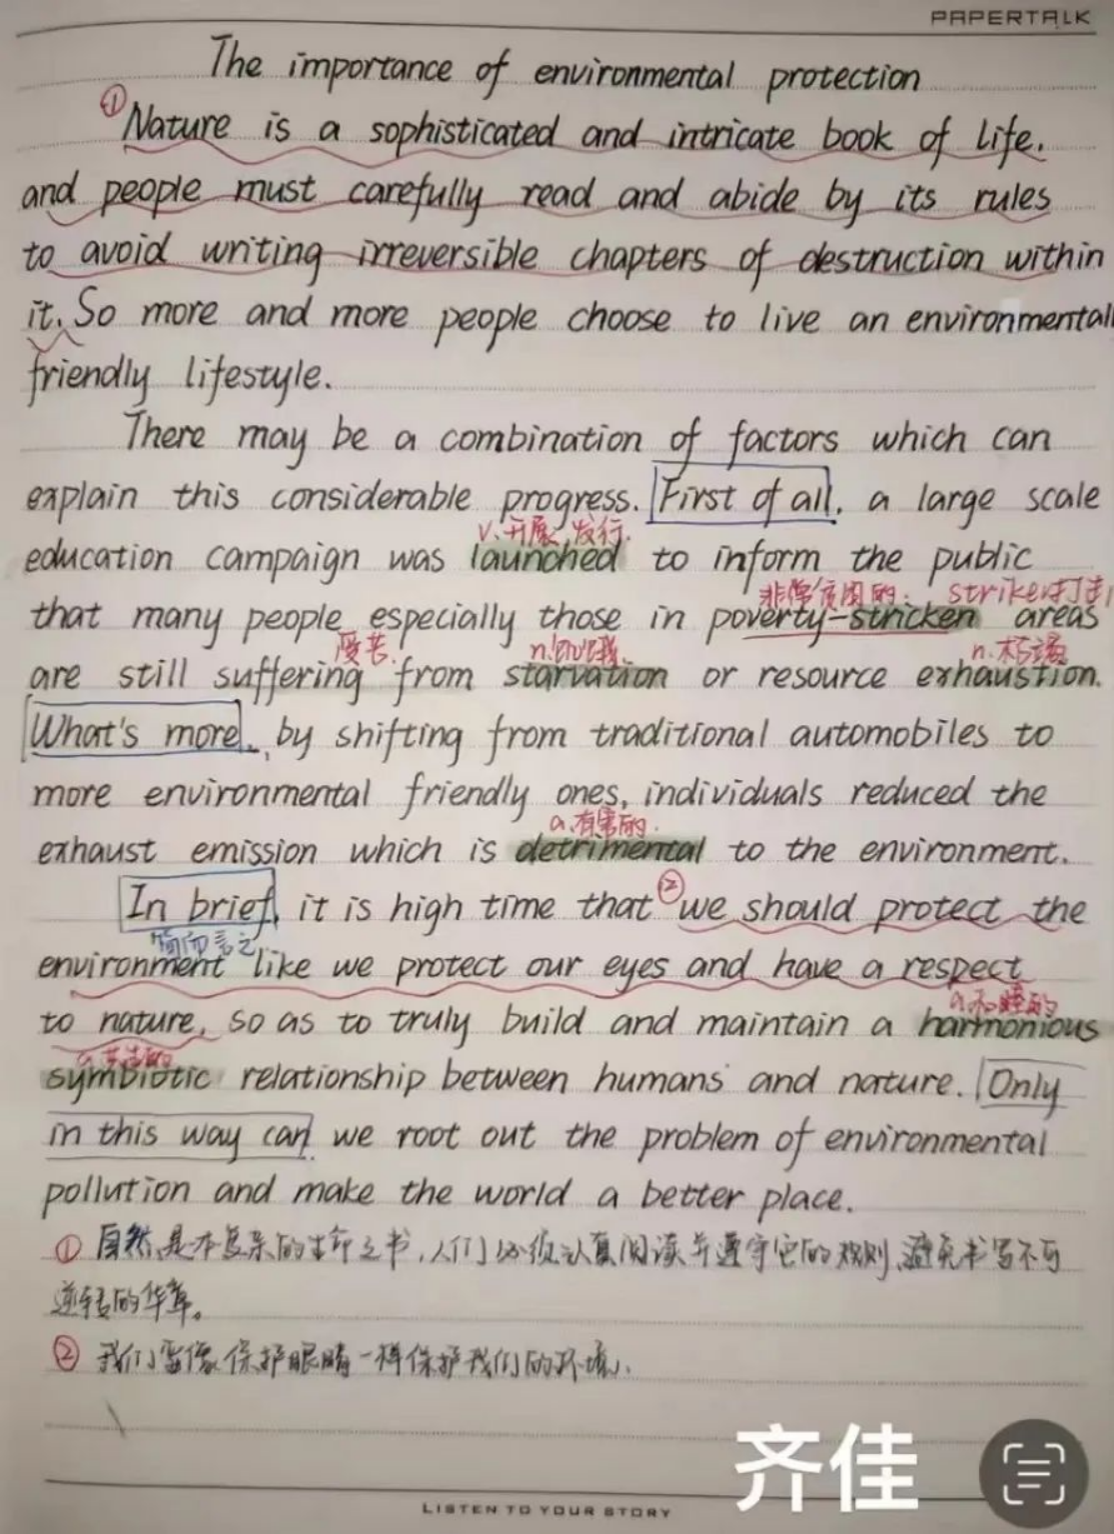 PAPERTALK
The importance of environmental protection
①Nature is a sophisticated and intricate book of life.
and people must carefully read and abide by its rules
to avoid writing irreversible chapters of destruction within
it. So more and more people choose to live an environmental
friendly lifestyle.
There may be a combination of factors which can
explain this considerable progress. First of all, a large scale
v.开展,发行.
education campaign was launched to inform the public
非常贫困的. strike打击
that many people especially those in poverty-stricken areas
受苦. n.饥饿. n.枯竭
are still suffering from starvation or resource exhaustion.
What's more, by shifting from traditional automobiles to
more environmental friendly ones, individuals reduced the
a.有害的.
exhaust emission which is detrimental to the environment.
In brief, it is high time that ②we should protect the
简而言之
environment like we protect our eyes and have a respect
a.和睦的
to nature, so as to truly build and maintain a harmonious
a.共生的
symbiotic relationship between humans and nature. Only
in this way can we root out the problem of environmental
pollution and make the world a better place.
① 自然是本复杂的生命之书,人们必须认真阅读并遵守它的规则,避免书写不可
逆转的华章。
② 我们要像保护眼睛一样保护我们的环境.
齐佳
LISTEN TO YOUR STORY